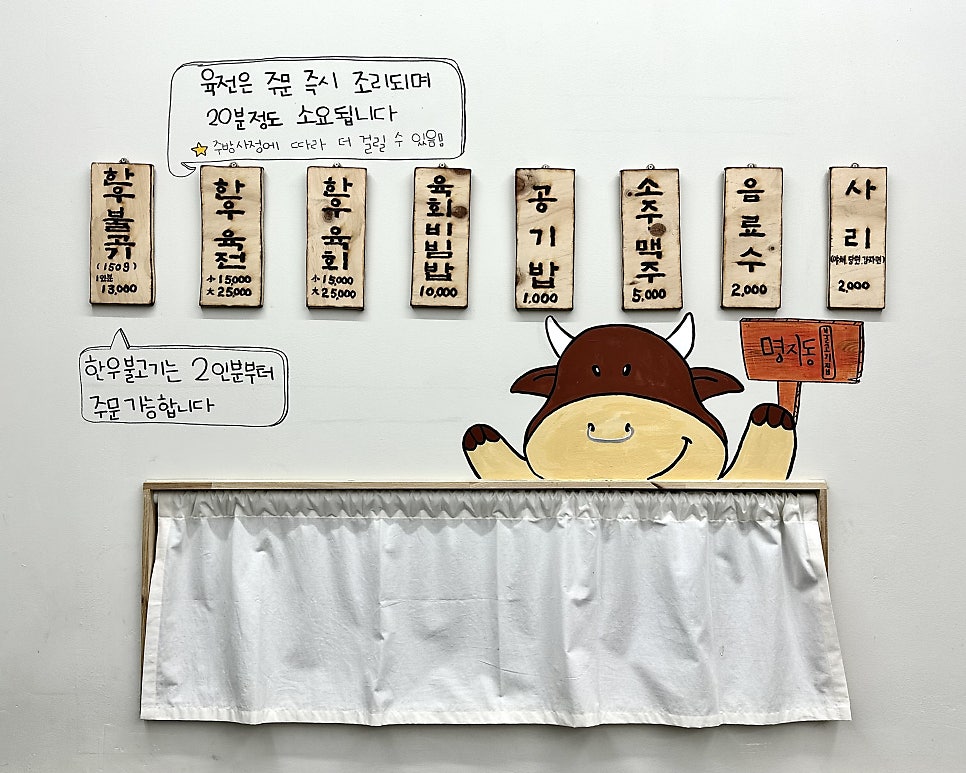 육전은 주문 즉시 조리되며
20분정도 소요됩니다
주방사정에 따라 더 걸릴 수 있음!
한우불고기
(150g)
1인분
13,000
한우육전
小 15,000
大 25,000
한우육회
小 15,000
大 25,000
육회비빔밥
10,000
공기밥
1,000
소주맥주
5,000
음료수
2,000
사리
2,000
한우불고기는 2인분부터
주문 가능합니다
명지동